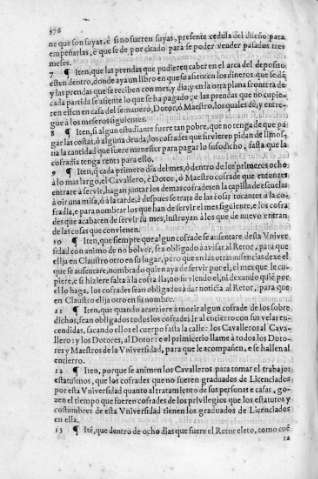 376
ne que son suyas, é si no fueren suyas, presente cedula del dueño para
empeñarlas, é que se dé por citado para se poder vender pasados tres
meses.
7 ¶ Iten, que las prendas que pudieren caber en el arca del deposito
esten dentro, donde aya un libro en que se asienten los dineros que se dá,
y las prendas que se reciben con mes, y dia; y en la otra plana frontera de
cada partida se asiente lo que se ha pagado; e las prendas que no cupie-
ren esten en casa del Dotor, ó Maestro,
gura los maseros siguientes.
8 ¶ Iten, si algun estudiante fuere tan pobre, que no tenga de que pa
gar las costas, ó alguna deuda, los cofrades que sirvieren pidan de limos
na la cantidad que fuere menester para pagar lo susodicho, hasta que la
cofradia tenga renta para ello.
9 ¶ Iten, q cada primero dia del mes, ó dentro de los primeros ocho
á lo mas largo, el Cavallero, é Dotor, ó Maestro cofrade que entonces
entrare á servir, hagan juntar los demas cofrades en la capilla de escuelas
á oir una misa, ó á la tarde, á despues
fradia, e para nombrar los que han de servir el mes siguiente, e los cofra-
des que acabaren de servir su mes, instruyan á los que de nuevo entran,
de las cosas que convienen.
10 ¶ Iten, que siempre que algun cofrade se ausentare desta Univer
sidad con animo de no bolver, sea obligado á avisar al Retor, para que
elija en Claustro otro en su lugar, pero que en las otras ausencias dexe el
que se ausentare, nombrado quien aya de servir por el, el mes que le cu-
piere, e si hiziere falta á la cofradia,
llo haga, los cofrades sean obligados á dar noticia al Retor, para que
en Claustro elija otro en su nombre.
11 ¶ Iten, que quando acaeciere á morir algun cofrade de los sobre
dichos, sean obligados todos los cofrades ir al encierro con sus velas en-
cendidas, sacando ellos el cuerpo hasta la calle: los Cavalleros al Cava-
llero: y los Dotores, al Dotor: e el primicerio llame á todos los Doto-
res y Maestros de la Universidad, para que le acompañen, e se hallen al
entierro.
12 ¶ Iten, porque se animen los Cavalleros para tomar el trabajo,
estatuimos, que los cofrades que no fueren graduados de Licenciados
por esta Universidad quanto al tratamiento de sus personas e casas, go-
zen el tiempo que fueren cofrades de los privilegios que los estatutos y
costumbres de esta Universidad tienen los graduados de Licenciados
en ella.
13 ¶ Ité, que dentro de ocho dias que fuere el Retor eleto, como esté
ta